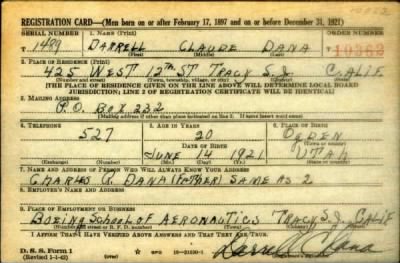 REGISTRATION CARD—(Men born on or after February 17, 1897 and on or before December 31, 1921)
SERIAL NUMBER 1. NAME (Print) ORDER NUMBER
T 1489 DARRELL CLAUDE DANA 10363
(First) (Middle) (Last)
2. PLACE OF RESIDENCE (Print)
425 WEST 12TH ST TRACY S.J. CALIF
(Number and street) (Town, township, village, or city) (County) (State)
[THE PLACE OF RESIDENCE GIVEN ON THE LINE ABOVE WILL DETERMINE LOCAL BOARD
JURISDICTION; LINE 2 OF REGISTRATION CERTIFICATE WILL BE IDENTICAL]
3. MAILING ADDRESS
P.O. BOX 232
[Mailing address if other than place indicated on line 2. If same insert word same]
4. TELEPHONE 5. AGE IN YEARS 6. PLACE OF BIRTH
527 20 OGDEN
DATE OF BIRTH (Town or county)
JUNE 14 1921 UTAH
(Exchange) (Number) (Mo.) (Day) (Yr.) (State or country)
7. NAME AND ADDRESS OF PERSON WHO WILL ALWAYS KNOW YOUR ADDRESS
CHARLES A. DANA (FATHER) SAME AS 2
8. EMPLOYER'S NAME AND ADDRESS
9. PLACE OF EMPLOYMENT OR BUSINESS
BOEING SCHOOL OF AERONAUTICS TRACY S.J. CALIF
(Number and street or R. F. D. number) (Town) (County) (State)
I AFFIRM THAT I HAVE VERIFIED ABOVE ANSWERS AND THAT THEY ARE TRUE.
D. S. S. Form 1
(Revised 1-1-42) GPO Darrell C Dana